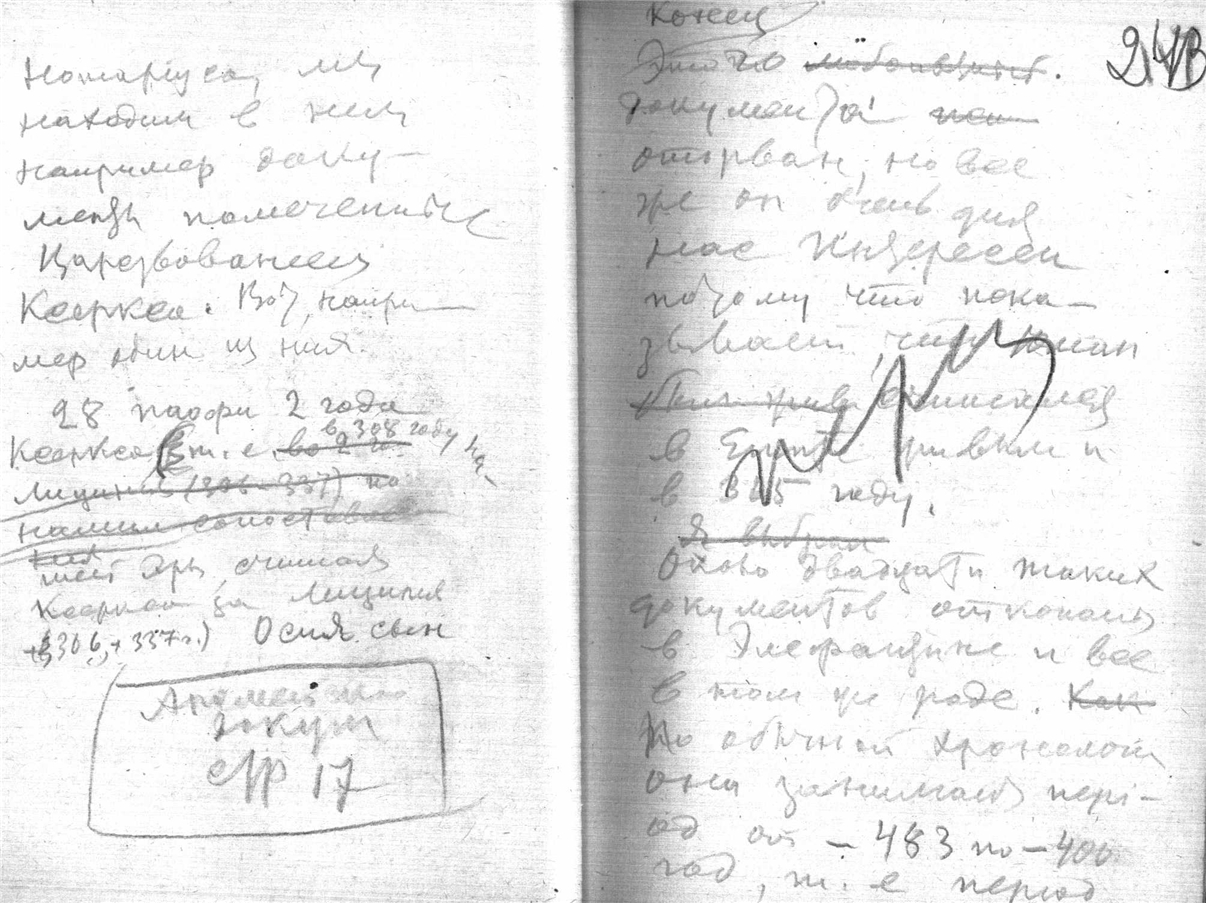 нотаріуса, мы
находим в них
например доку-
менты помеченные
Царствованием
Ксеркса. Вот, напри-
мер один из них.
28 паофи 2 года
Ксеркса т. е. во 2 го
в 308 году на-
Лициния (306-337) по
нашим сопоставле
ния
шей эры, считая
Ксеркса за Лициния
+306, +337 г.) Осия сын
Арамейск
докум
стр 17
Конец
24В
Этого любопытн.
документа
оторван, но все
же он очень для
нас Интересен
потому что пока-
зывает, что
в Египте и
в году.
Я выбрал
Около двадцати таких
документов откопаны
в Элефантине и все
в том же роде. Как
По обычной хронологии
они занимают пері-
од от – 483 по – 400
год, т. е период